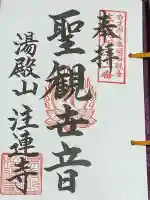 奉拝
聖観世音
湯殿山 注連寺